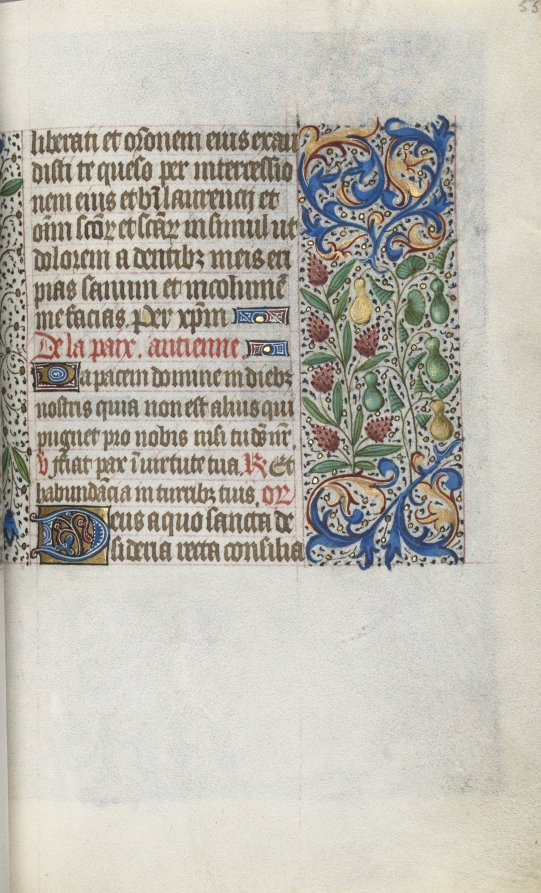 55
liberati et or̄onem eius exau
disti te queso per intercessio
nem eius et b̄i laurencij et
oīm sc̄or et sc̄ar insimul ut
dolorem a dentibꝫ meis eri
pias sanum et incolumē
me facias. Per xp̄m
De la paix. antienne
Da pacem domine in diebꝫ
nostris quia non est alius qui
pugnet pro nobis nisi tu dē nr̄.
V̷ fiat pax ī uirtute tua. R̷ Et
habundācia in turribꝫ tuis. or̄
Deus a quo sancta de
sideria recta consilia